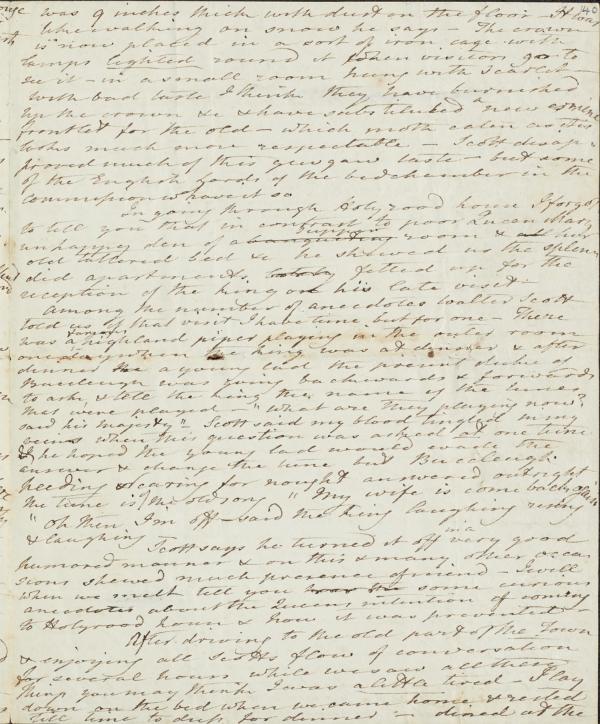 was 9 inches thick with dust on the floor – It was
like walking on snow he says – The crown
is now placed in a sort of iron cage with
lamps lighted round it when visitors go to
see it – in a small room hung with scarlet –
with bad taste I think they have burnished
up the crown &c & have substituted a new ermine
frontlet for the old – which moth eaten as it is
looks much more respectable – Scott disap-
proved much of this gewgaw taste – but some
of the English Lords of the bedchamber in the
Commission would have it so
in going through Holyrood house I forgot
to tell you that in contrast to poor Queen Mary's
unhappy den of a banqueting supper room & her
old tattered bed &c he shewed us the splen-
did apartments fitted up for the
reception of the King on his late visit –
Among the number of anecdotes Walter Scott
told us of that visit I have time but for one – There
was a famous highland piper playing in the outer room
one day when the King was at dinner & after
dinner a young lad the present duke of
Buccleugh was going backwards & forwards
to ask & tell the King the name of the tunes
that were played – "What are they playing now?"
said his majesty" Scott said my blood tingled in my
veins when this question was asked at one tune
& he hoped the young lad would evade the
answer & change the tune but Buccleugh
heeding & caring for nought answered outright
the tune is the old song "My wife is come back again
"Oh then I'm off – said the King laughing rising
& laughing
Scott says he turned it off in a very good
humored manner & on this & many other occa
sions shewed much presence of mind – I will
when we meet tell you some curious
anecdotes about the Queens intention of coming
to Holyrood house & how it was prevented –
After driving to the old part of the Town
& enjoying all Scotts flow of conversation
for several hours while we saw all these
things you may think I was a little tired – I lay
down on the bed when we came home & rested
till time to dress for dinner – dined at the